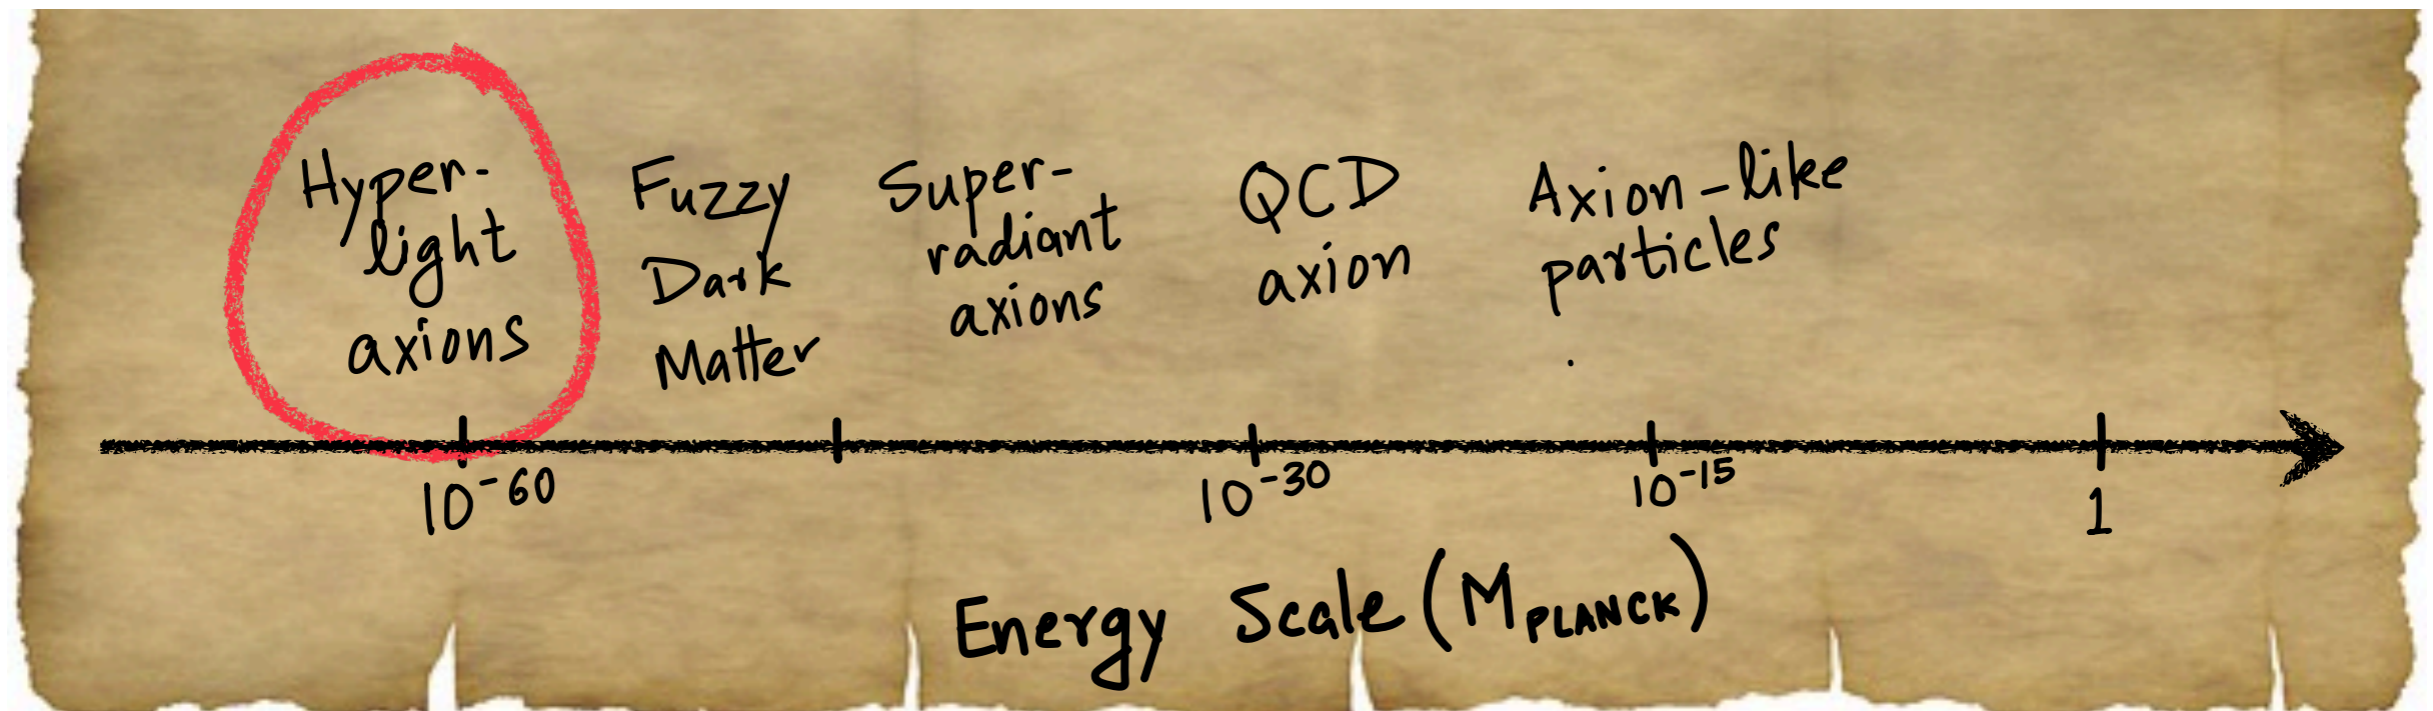 Hyper-
light
axions
Fuzzy
Dark
Matter
Super-
radiant
axions
QCD
axion
Axion-like
particles
10⁻⁶⁰
10⁻³⁰
10⁻¹⁵
1
Energy Scale (M_PLANCK)